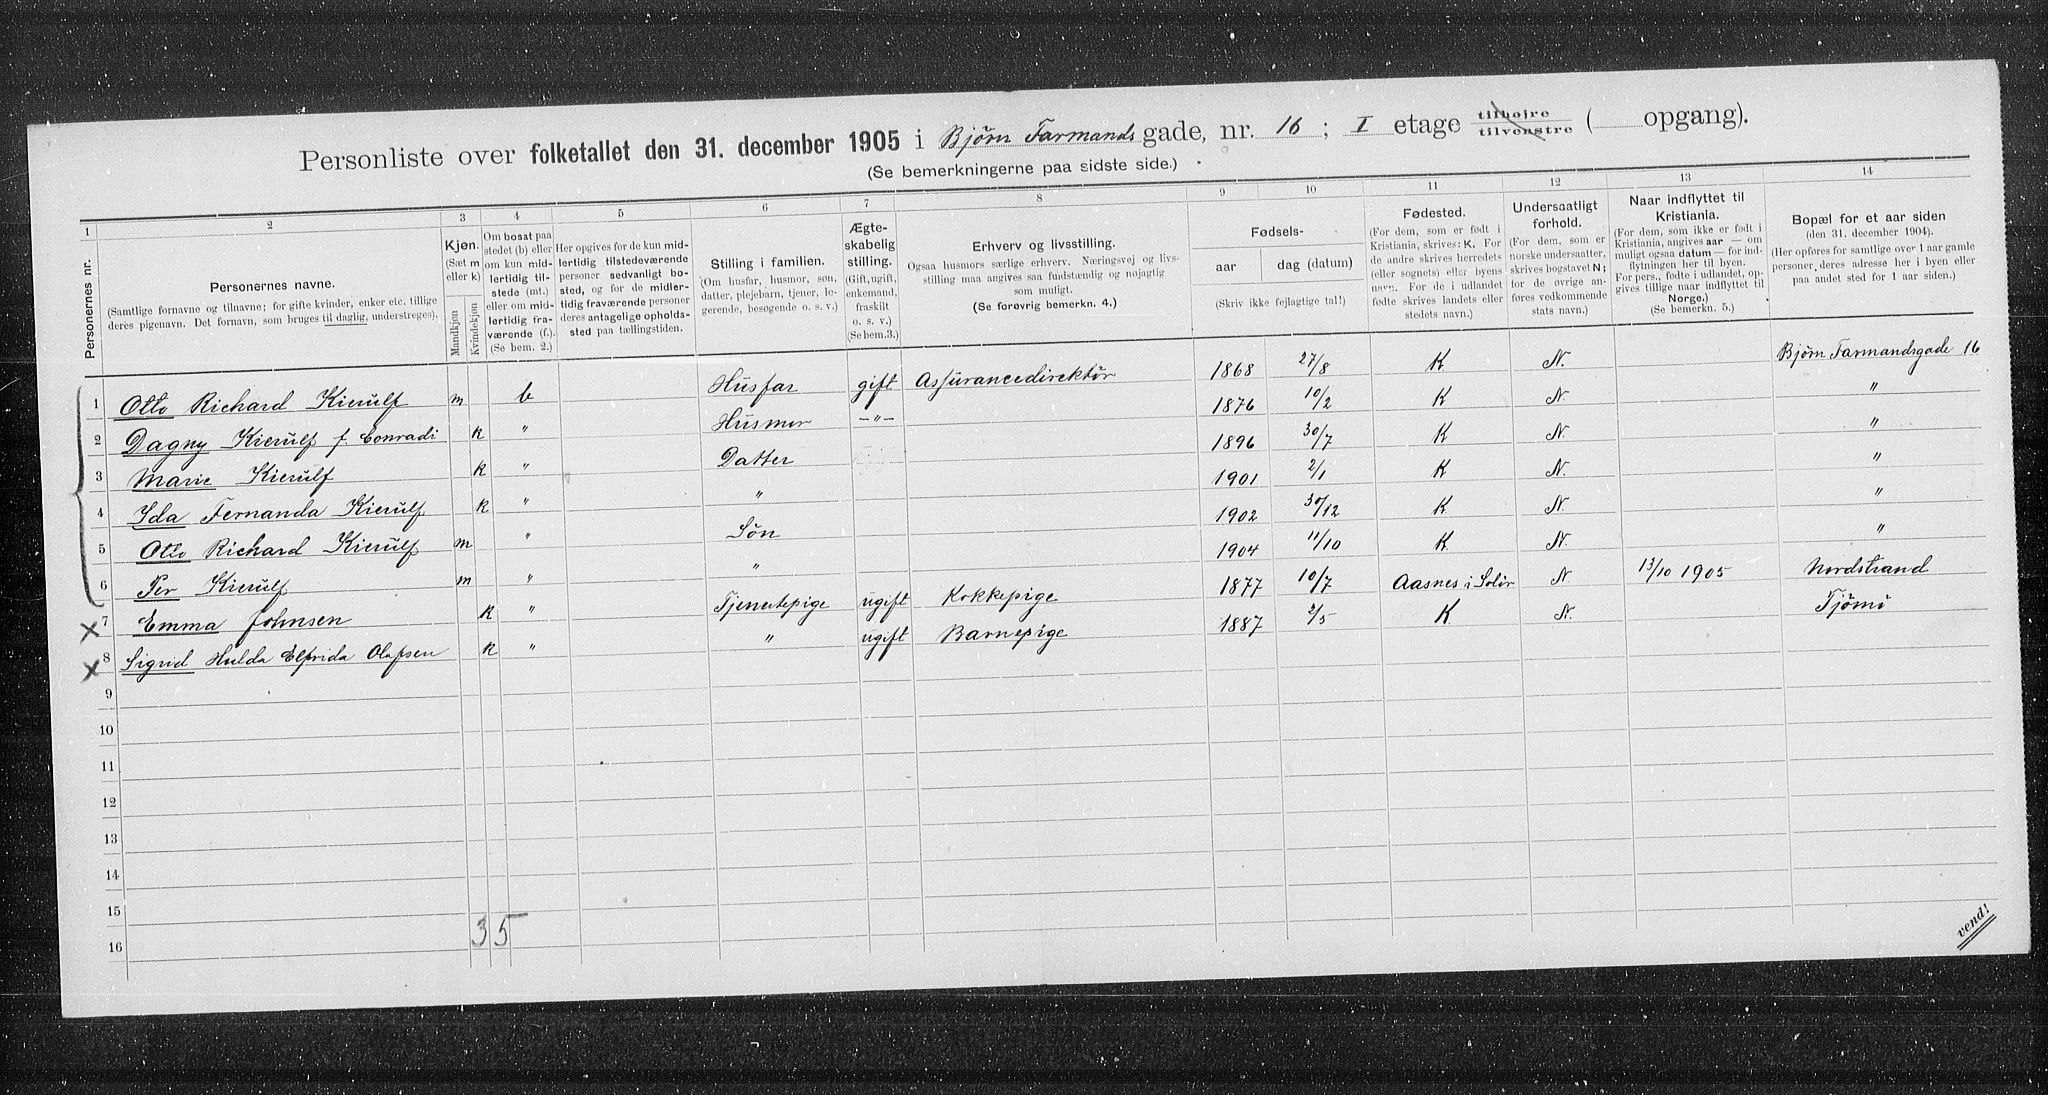 Personliste over folketallet den 31. december 1905 i Bjørn Farmands gade, nr. 16 ; I etage tilhøjre tilvenstre ( opgang).
(Se bemerkningerne paa sidste side.)
1 2 3 4 5 6 7 8 9 10 11 12 13 14
Personernes nr.
Personernes navne.
(Samtlige fornavne og tilnavne; for gifte kvinder, enker etc. tillige
deres pigenavn. Det fornavn, som bruges til daglig, understreges).
Kjøn.
(Sæt m
eller k)
Mandkjøn
Kvindekjøn
Om bosat paa
stedet (b) eller
om kun mid-
lertidig til-
stede (mt.)
eller om mid-
lertidig fra-
værende (f.).
(Se bem. 2.)
Her opgives for de kun mid-
lertidig tilstedeværende
personer sedvanligt bo-
sted, og for de midler-
tidig fraværende personer
deres antagelige opholds-
sted paa tællingstiden.
Stilling i familien.
(Om husfar, husmor, søn,
datter, plejebarn, tjener, lo-
gerende, besøgende o. s. v.)
Ægte-
skabelig
stilling.
(Gift, ugift,
enkemand,
fraskilt
o. s. v.)
(Se bem.3.)
Erhverv og livsstilling.
Ogsaa husmors særlige erhverv. Næringsvej og livs-
stilling maa angives saa fuldstændig og nøjagtig
som muligt.
(Se forøvrig bemerkn. 4.)
Fødsels-
aar
dag (datum)
(Skriv ikke fejlagtige tal!)
Fødested.
(For dem, som er født i
Kristiania, skrives: K. For
de andre skrives herredets
(eller sognets) eller byens
navn. For de i udlandet
fødte skrives landets eller
stedets navn.)
Undersaatligt
forhold.
(For dem, som er
norske undersaatter,
skrives bogstavet N;
for de øvrige an-
føres vedkommende
stats navn.)
Naar indflyttet til
Kristiania.
(For dem, som ikke er født i
Kristiania, angives aar — om
muligt ogsaa datum — for ind-
flytningen her til byen.
For pers., fødte i udlandet, op-
gives tillige naar indflyttet til
Norge.)
(Se bemerkn. 5.)
Bopæl for et aar siden
(den 31. december 1904).
(Her opføres for samtlige over 1 aar gamle
personer deres adresse her i byen eller
paa andet sted for 1 aar siden.)
1 Otto Richard Kierulf m b Husfar gift Assurancedirektør 1868 27/8 K N. Bjørn Farmandsgade 16
2 Dagny Kierulf f Conradi k " Husmor -"- 1876 10/2 K N "
3 Marie Kierulf k " Datter 1896 30/7 K N. "
4 Ida Fernanda Kierulf k " " 1901 2/1 K N. "
5 Otto Richard Kierulf m " Søn 1902 30/12 K N. "
6 Per Kierulf m " " 1904 11/10 K N. "
7 Emma Johnsen k " Tjenestepige ugift Kokkepige 1877 10/7 Aasnes i Solør N 13/10 1905 Nordstrand
8 Sigrid Hulda Elfrida Olafsen k " " ugift Barnepige 1887 2/5 K N. Tjømø
9
10
11
12
13
14
15
16
3 5
vend!